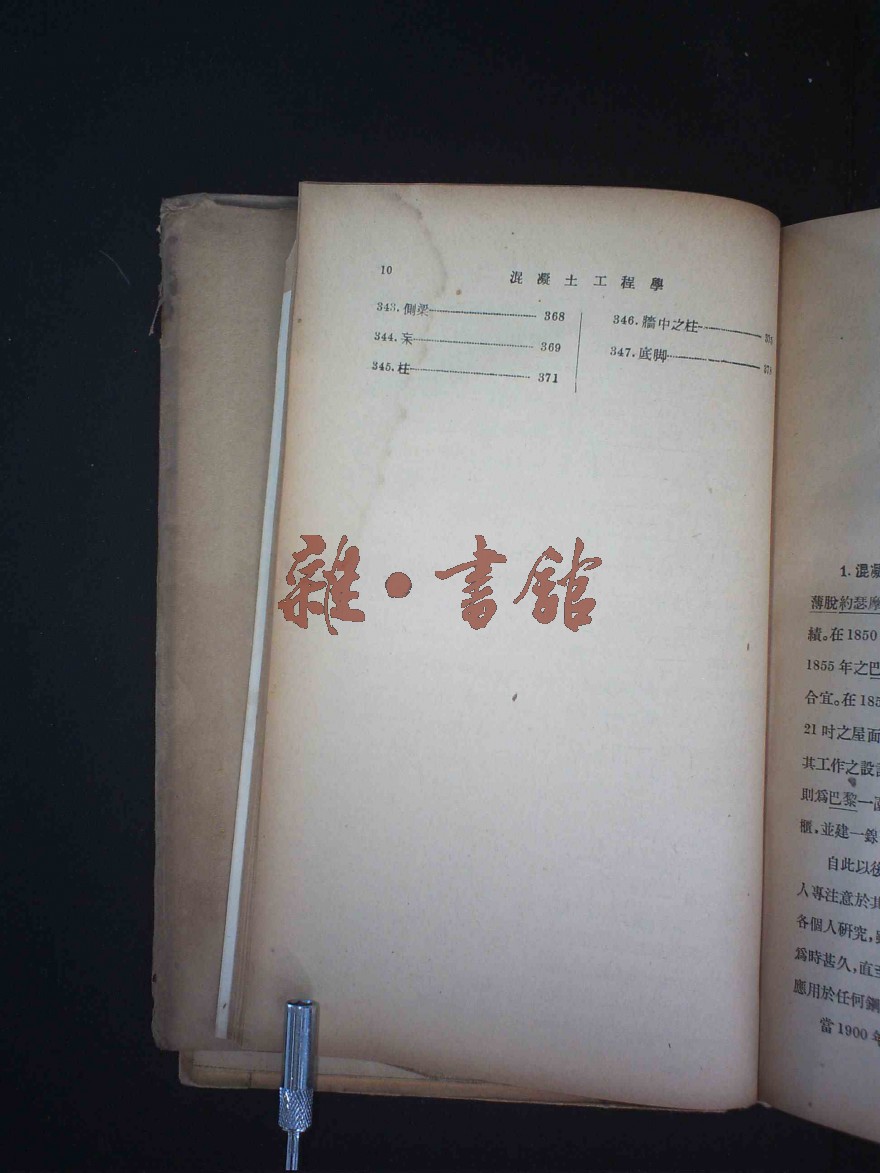 10
混凝土工程學
343. 側梁 368
344. 宎 369
345. 柱 371
346. 牆中之柱
347. 底脚
雜·書館
1. 混凝
薄脫約瑟摩
績。在 1850
1855 年之巴
合宜。在 185
21 吋之屋面
其工作之設
則爲巴黎一
櫃，並建一
自此以後
人專注意於其
各個人研究，
爲時甚久，直至
應用於任何鋼
當 1900 年